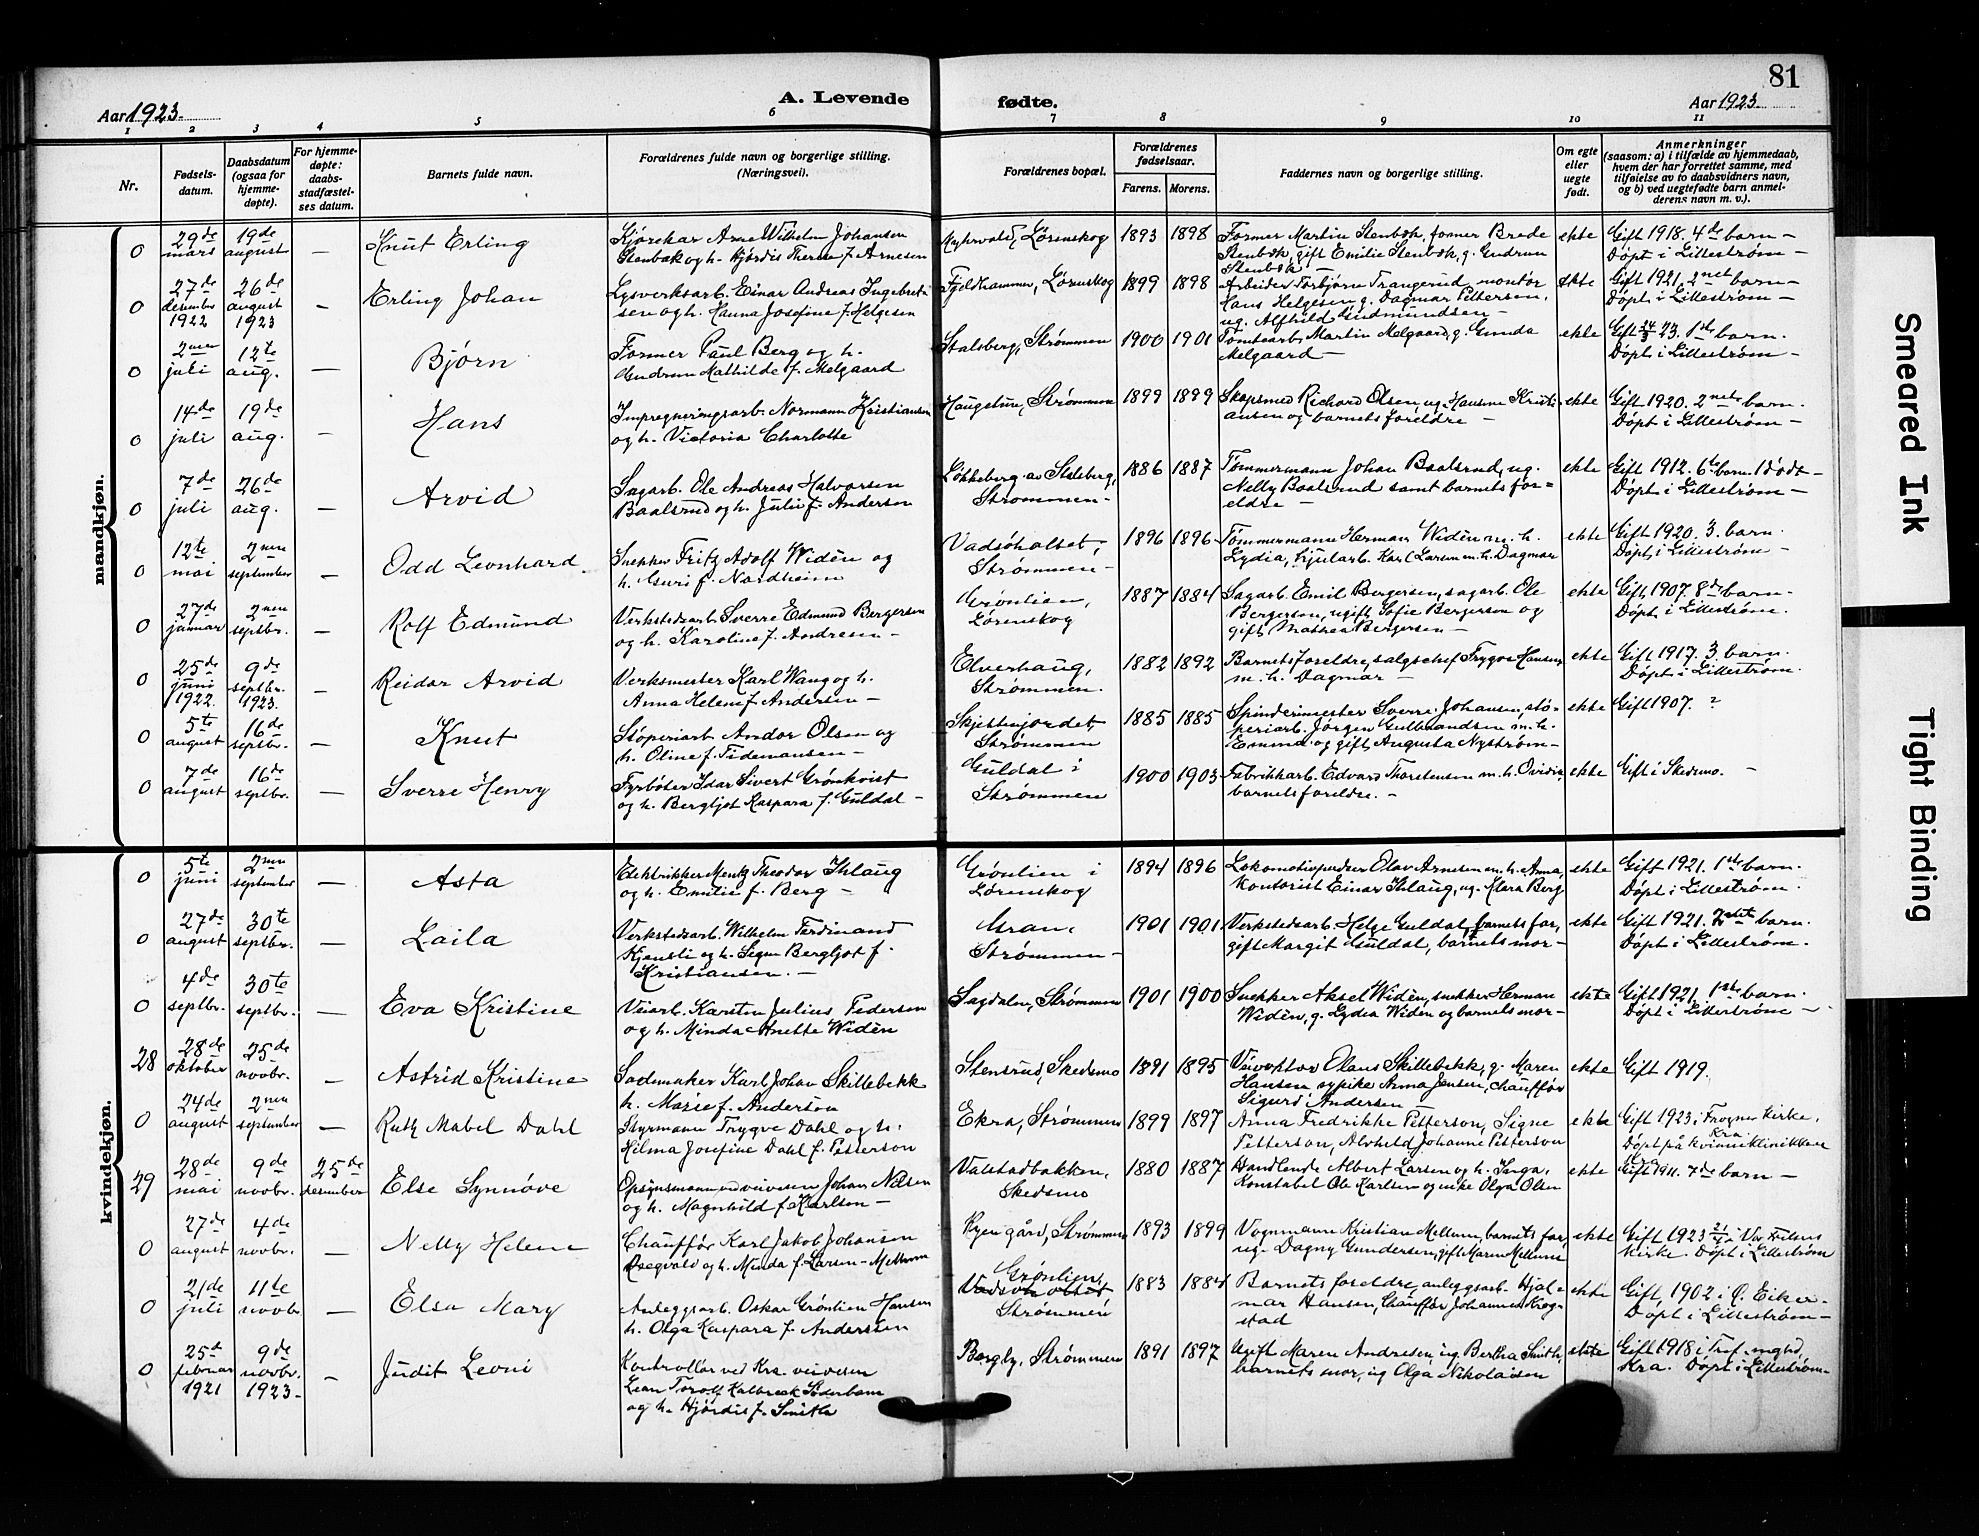 81
Aar 1923. A. Levende fødte. Aar 1923
1 2 3 4 5 6 7 8 9 10 11
Nr.
Fødsels-
datum.
Daabsdatum
(ogsaa for
hjemme-
døpte).
For hjemme-
døpte:
daabs-
stadfæstel-
ses datum.
Barnets fulde navn.
Forældrenes fulde navn og borgerlige stilling.
(Næringsvei).
Forældrenes bopæl.
Forældrenes
fødselsaar.
Farens. Morens.
Faddernes navn og borgerlige stilling.
Om egte
eller
uegte
født.
Anmerkninger
(saasom: a) i tilfælde av hjemmedaab,
hvem der har forrettet samme, med
tilføielse av to daabsvidners navn,
og b) ved uegtefødte barn anmel-
derens navn m. v.).
mandkjøn.
0 29de mars 19de august — Knut Erling
Kjørekar Arne Wilhelm Johansen
Stenbæk og h. Hjørdis Therese f. Arnesen
Lørenskog 1893 1898
Former Martin Stenbæk, former Brede
Stenbæk, gift Emilie Stenbæk, g. Gudrun
Stenbæk —
ekte Gift 1918. 4de barn —
Døpt i Lillestrøm —
0 27de desember 1922 26de august 1923 — Erling Johan
Lysverksarb. Einar Andreas Ingebret-
sen og h. Hanna Josefine f. Helgesen
Fjeldhammer, Lørenskog 1899 1898
Arbeider Torbjørn Trangerud, montør
Hans Helgesen g. Dagmar Pettersen,
ug. Alfhild Gudmundsen —
ekte Gift 1921. 2net barn —
Døpt i Lillestrøm —
0 2nen juli 12te aug. — Bjørn
Former Paul Berg og h.
Gudrun Mathilde f. Melgaard
Stalsberg, Strømmen 1900 1901
Tomtearb. Martin Melgaard, g. Gunda
Melgaard —
ekte Gift 24/3 23. 1ste barn.
Døpt i Lillestrøm —
0 14de juli 19de aug. — Hans
Impregneringsarb. Normann Kristiansen
og h. Victoria Charlotte
Haugstun, Strømmen 1899 1899
Skapsmed Richard Olsen, ug. Hansine Kristi-
ansen og barnets foreldre —
ekte Gift 1920. 2net barn.
Døpt i Lillestrøm —
0 7de juli 26de aug. — Arvid
Sagarb. Ole Andreas Halvorsen
Baalsrud og h. Julie f. Anderson
Løkkeberg av Stalsberg,
Strømmen —
1886 1887
Tømmermann Johan Baalsrud, ug.
Nelly Baalsrud samt barnets for-
eldre —
ekte Gift 1912. 6te barn. 1 død —
Døpt i Lillestrøm —
0 12te mai 2nen september — Odd Leonhard
Snekker Fritz Adolf Widèn og
h. Guri f. Nordheim
Vadsøholtet,
Strømmen —
1896 1896
Tømmermann Herman Widèn m. h.
Lydia, hjularb. Karl Larsen m. h. Dagmar
ekte Gift 1920. 3. barn.
Døpt i Lillestrøm —
0 27de januar 2nen septbr. — Rolf Edmund
Verkstedsarb. Sverre Edmund Bergersen
og h. Karoline f. Andresen —
Grønlien,
Lørenskog
1887 1884
Sagarb. Emil Bergersen, sagarb. Ole
Bergersen, ugift Sofie Bergersen og
gift Mathea Bergersen —
ekte Gift 1907. 8de barn —
Døpt i Lillestrøm.
0 25de juni 1922 9de septbr. 1923. — Reidar Arvid
Verksmester Karl Wang og h.
Anna Helene f. Andersen —
Elverhaug,
Strømmen.
1882 1892
Barnets foreldre, salgschef Trygve Hansen
m. h. Dagmar —
ekte Gift 1917. 3. barn.
Døpt i Lillestrøm.
0 5te august 16de septbr. — Knut
Støperiarb. Amdor Olsen og
h. Oline f. Tidemansen —
Skjettenjordet,
Strømmen
1885 1885
Spinderimester Sverre Johansen, stø-
periarb. Jørgen Gulbrandsen m. h.
Emma og gift Augusta Nystrøm —
ekte Gift 1907. ?
0 7de august 16de septbr. — Sverre Henry
Fyrbøter Idar Sivert Grønkvist
og h. Bergljot Kaspara f. Guldal —
Guldal i
Strømmen
1900 1903
Fabrikkarb. Edvard Thorstensen m. h. Ovidia,
barnets foreldre. —
ekte Gift i Skedsmo. —
kvindekjøn.
0 5te juni 2nen september — Asta
Elektrikker Mentz Theodor Ihlaug
og h. Emilie f. Berg —
Grønlien i
Lørenskog
1894 1896
Lokomotivpudser Olav Arnesen m. h. Anna,
kontorist Einar Ihlaug, ug. Klara Berg
ekte Gift 1921. 1ste barn.
Døpt i Lillestrøm.
0 27de august 30te septbr. — Laila
Verkstedsarb. Wilhelm Ferdinand
Kjensli og h. Signe Bergljot f.
Kristiansen. —
Gran,
Strømmen —
1901 1901
Verkstedsarb. Helge Guldal, barnets far,
gift Margit Guldal, barnets mor —
ekte Gift 1921. 2net barn.
Døpt i Lillestrøm.
0 4de septbr. 30te septbr. — Eva Kristine
Veiarb. Karsten Julius Pedersen
og h. Minda Anette Widèn
Sagdalen, Strømmen 1901 1900
Snekker Aksel Widèn, snekker Herman
Widèn, g. Lydia Widèn og barnets mor —
ekte Gift 1921. 1ste barn.
Døpt i Lillestrøm —
28 28de oktober 25de novbr. — Astrid Kristine
Sademaker Karl Johan Skillebekk
h. Marie f. Anderson
Stensrud, Skedsmo 1891 1895
Veivokter Olaus Skillebekk, g. Maren
Hansen, sypike Anna Jensen, chauffør
Sigurd Andersen
ekte Gift 1919.
0 24de august 2nen september — Ruth Mabel Dahl
Styrmann Trygve Dahl og h.
Hilma Josefine Dahl f. Petterson
Ekra, Strømmen 1899 1897
Anna Fredrikke Petterson, Signe
Petterson, Alvhild Johanne Petterson
ekte Gift 1923 i Frogner Kirke,
Kra.
Døpt på kvinneklinikken
29 28de mai 9de novbr. 25de desember Else Synnøve
Opsynsmann ved veivesen Johan Nilsen
og h. Magnhild f. Karlsen —
Valstadbakken,
Skedsmo
1880 1887
Handlende Albert Larsen og h. Inga,
Konstabel Ole Karlsen og enke Olga Olsen
ekte Gift 1911. 7de barn —
0 27de august 4de novbr. — Nelly Helene
Chauffør Karl Jakob Johansen
Rægvald og h. Minda f. Larsen - Mellum
Ryen gård, Strømmen 1893 1899
Vognmann Kristian Mellum, barnets far,
ug. Dagny Gundersen, gift Maren Mellum
ekte Gift 1923 21/4 i Vor Frelsers
Kirke. Døpt i Lillestrøm
0 21de juli 11te novbr — Elsa Mary
Anleggsarb. Oskar Grønlien Hansen
h. Olga Kaspara f. Andersten
Grønlien,
Vadsøholtet
Strømmen
1883 1884
Barnets foreldre, anleggsarb. Hjal-
mar Hansen, Chauffør Johannes Krog-
stad
ekte Gift 1902 i Ø. Eiker —
Døpt i Lillestrøm —
0 25t februar 1921 9de novbr. 1923 — Judit Leoni
Kontrollør ved Kra. veivesen
Leon Torolf Kalbreck Söderbom
og h. Hjørdis f. Smith
Borgby, Strømmen 1891 1897
Ugift Maren Andresen, ug. Bertha Smith,
barnets mor, ug Olga Nikolaisen
ekte Gift 1918 i Tref. mghd,
Kra. Døpt i Lillestrøm —
Smeared Ink
Tight Binding